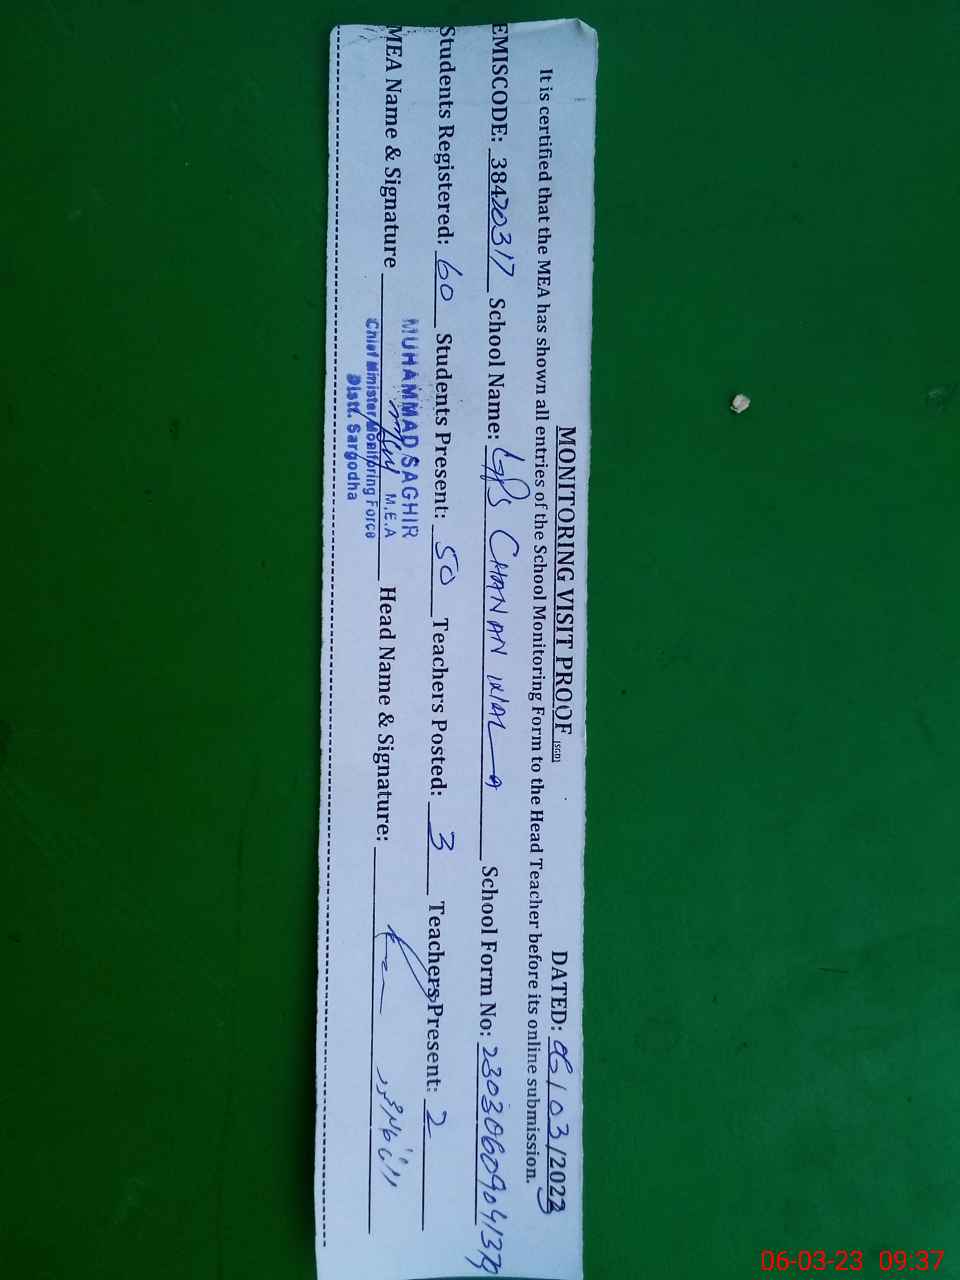 MONITORING VISIT PROOF [SGD] DATED: 06/03/2023
It is certified that the MEA has shown all entries of the School Monitoring Form to the Head Teacher before its online submission.
EMISCODE: 38420317 School Name: GPS CHANAN WALA School Form No:
Students Registered: 60 Students Present: 50 Teachers Posted: 3 Teachers Present: 2
MEA Name & Signature Head Name & Signature:
MUHAMMAD SAGHIR
M.E.A
Chief Minister Monitoring Force
Distt. Sargodha
06-03-23 09:37